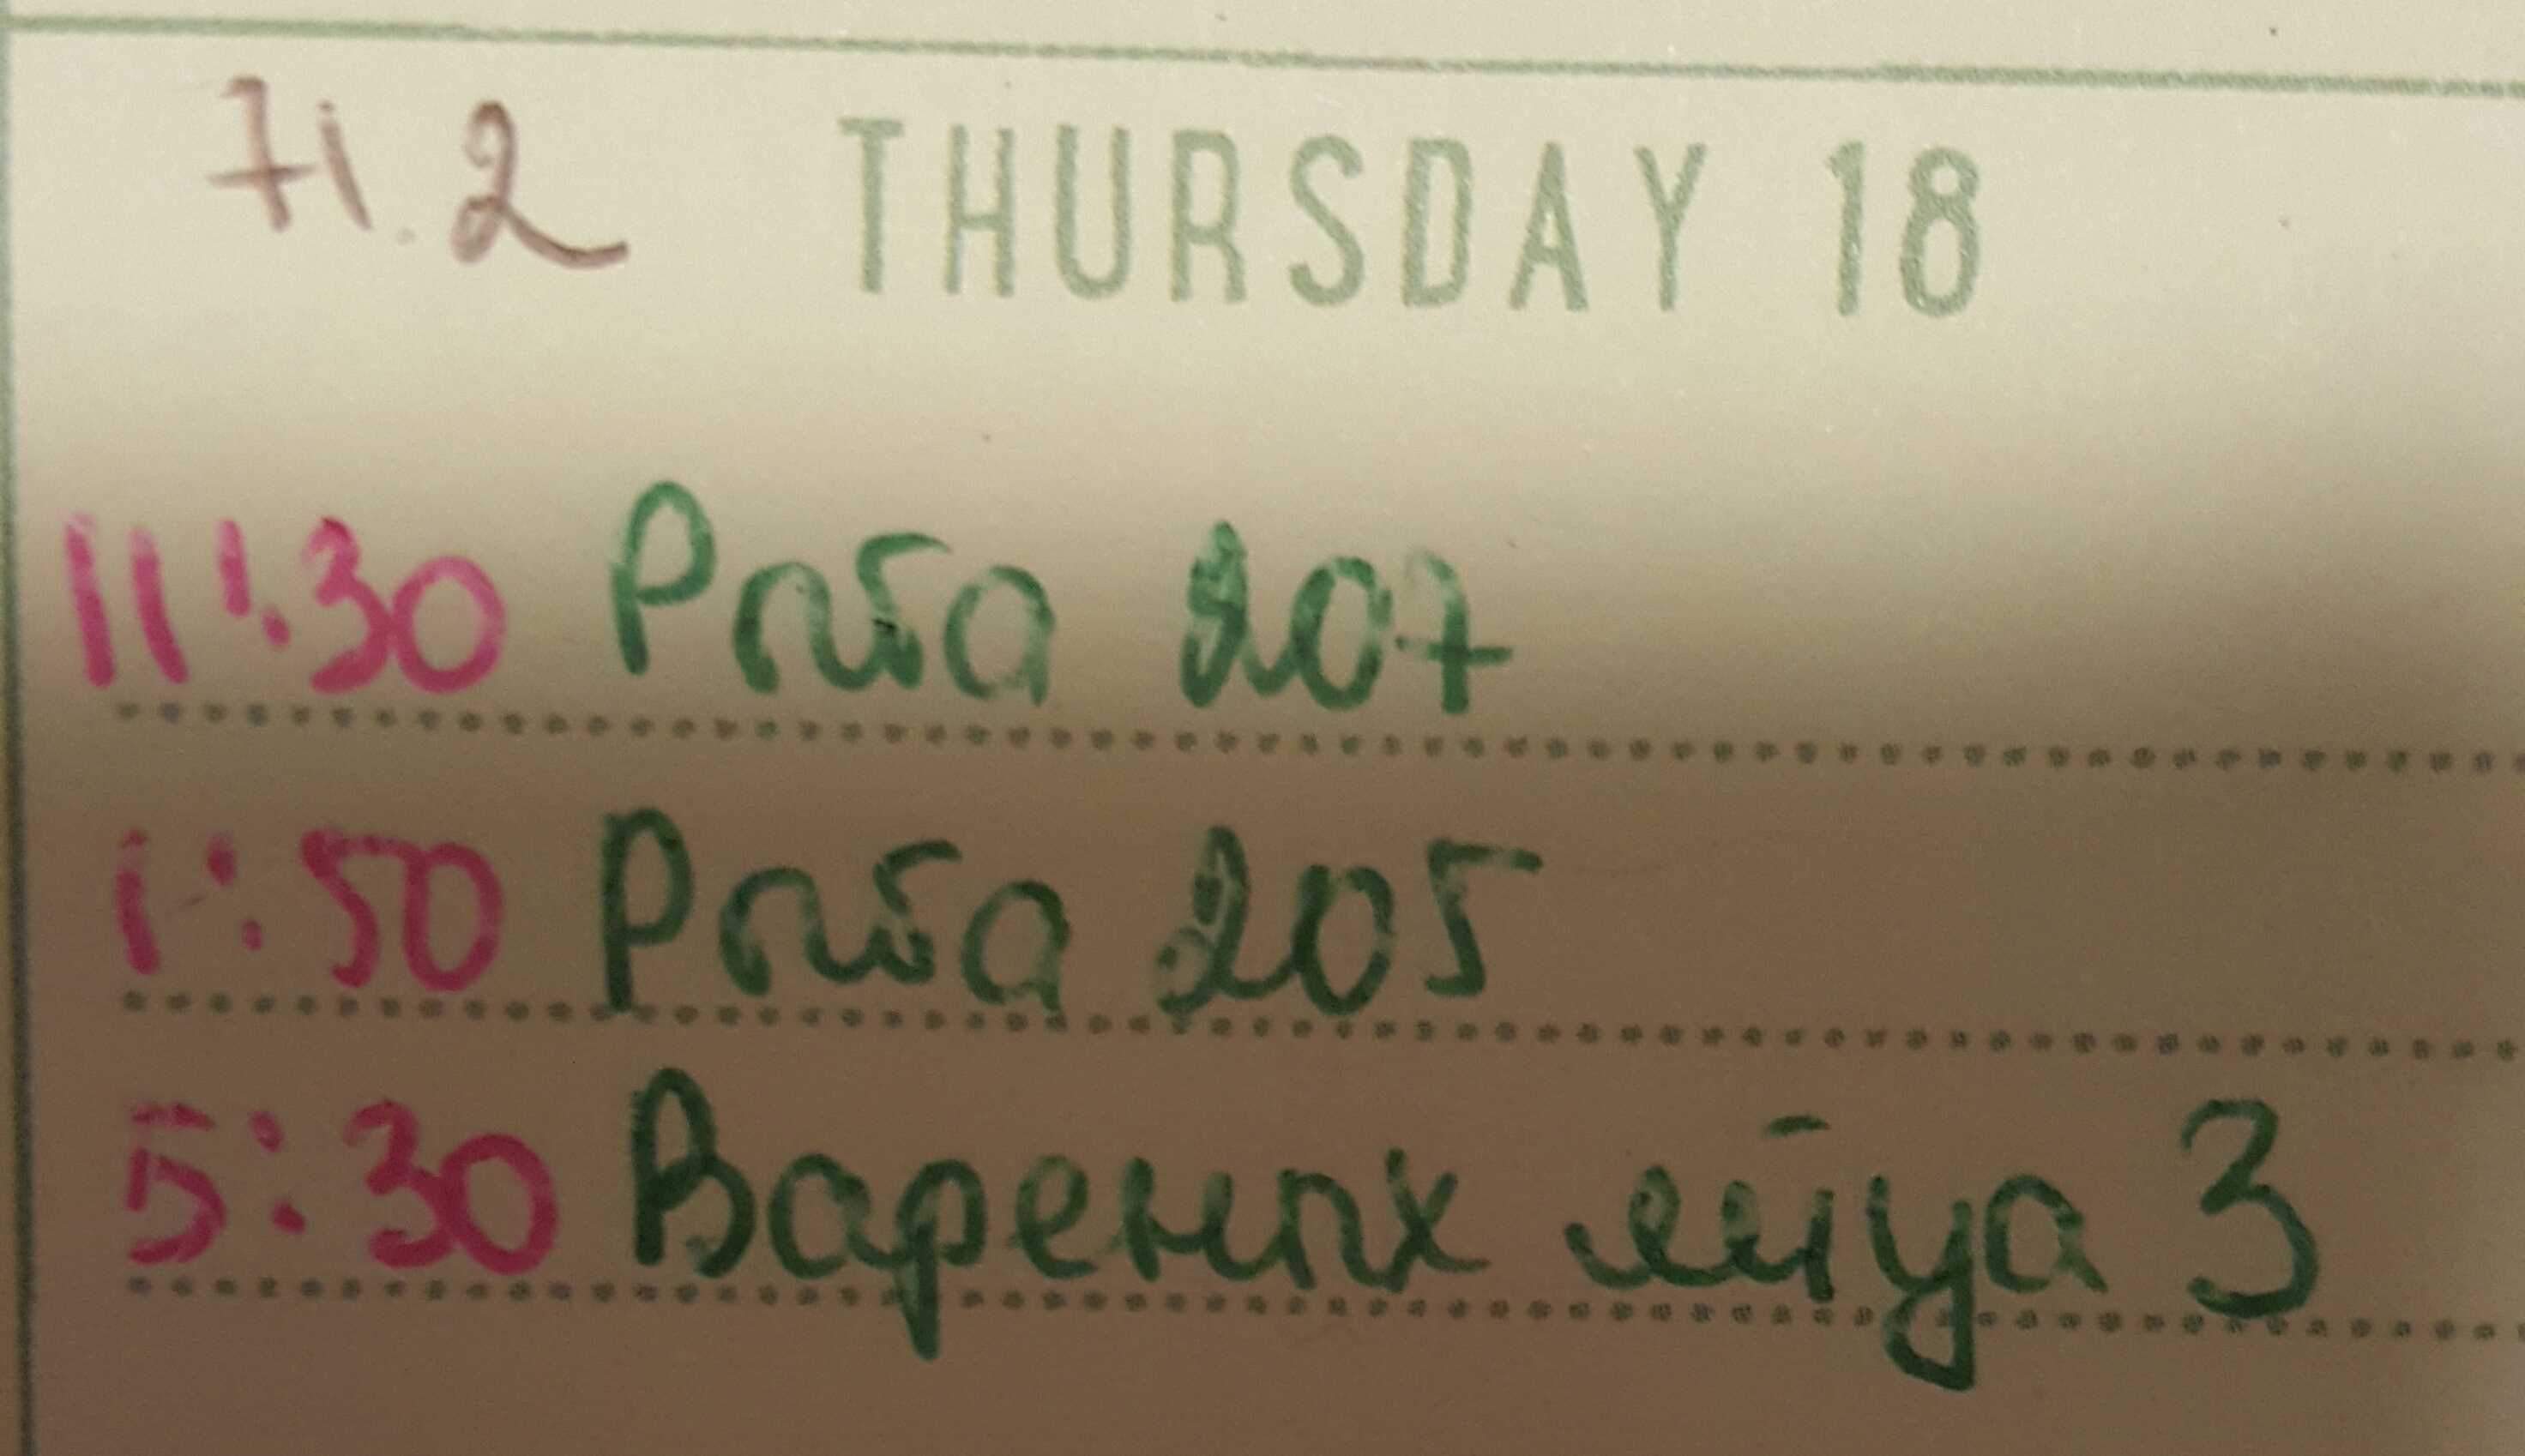 71.2 THURSDAY 18
11:30 Рыба 207
1:50 Рыба 205
5:30 Вареных яйца 3